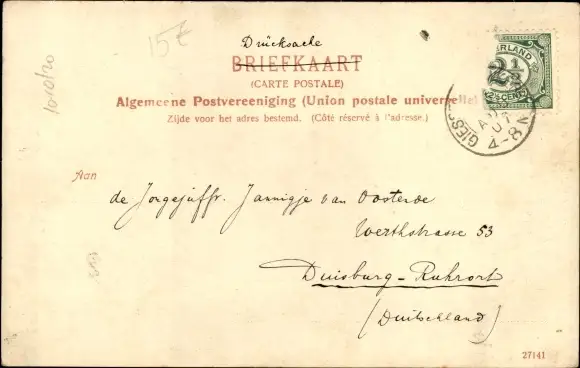 15€
10/0/20
Drücksache
BRIEFKAART
(CARTE POSTALE)
Algemeene Postvereeniging (Union postale universelle)
Zijde voor het adres bestemd. (Côté réservé à l'adresse.)
2½
GIES
4-8N
Aan
de Jorgejuffr. Jannigje van Oosterde
Werthstrasse 53
Duisburg-Ruhrort
(Duitschland)
27141